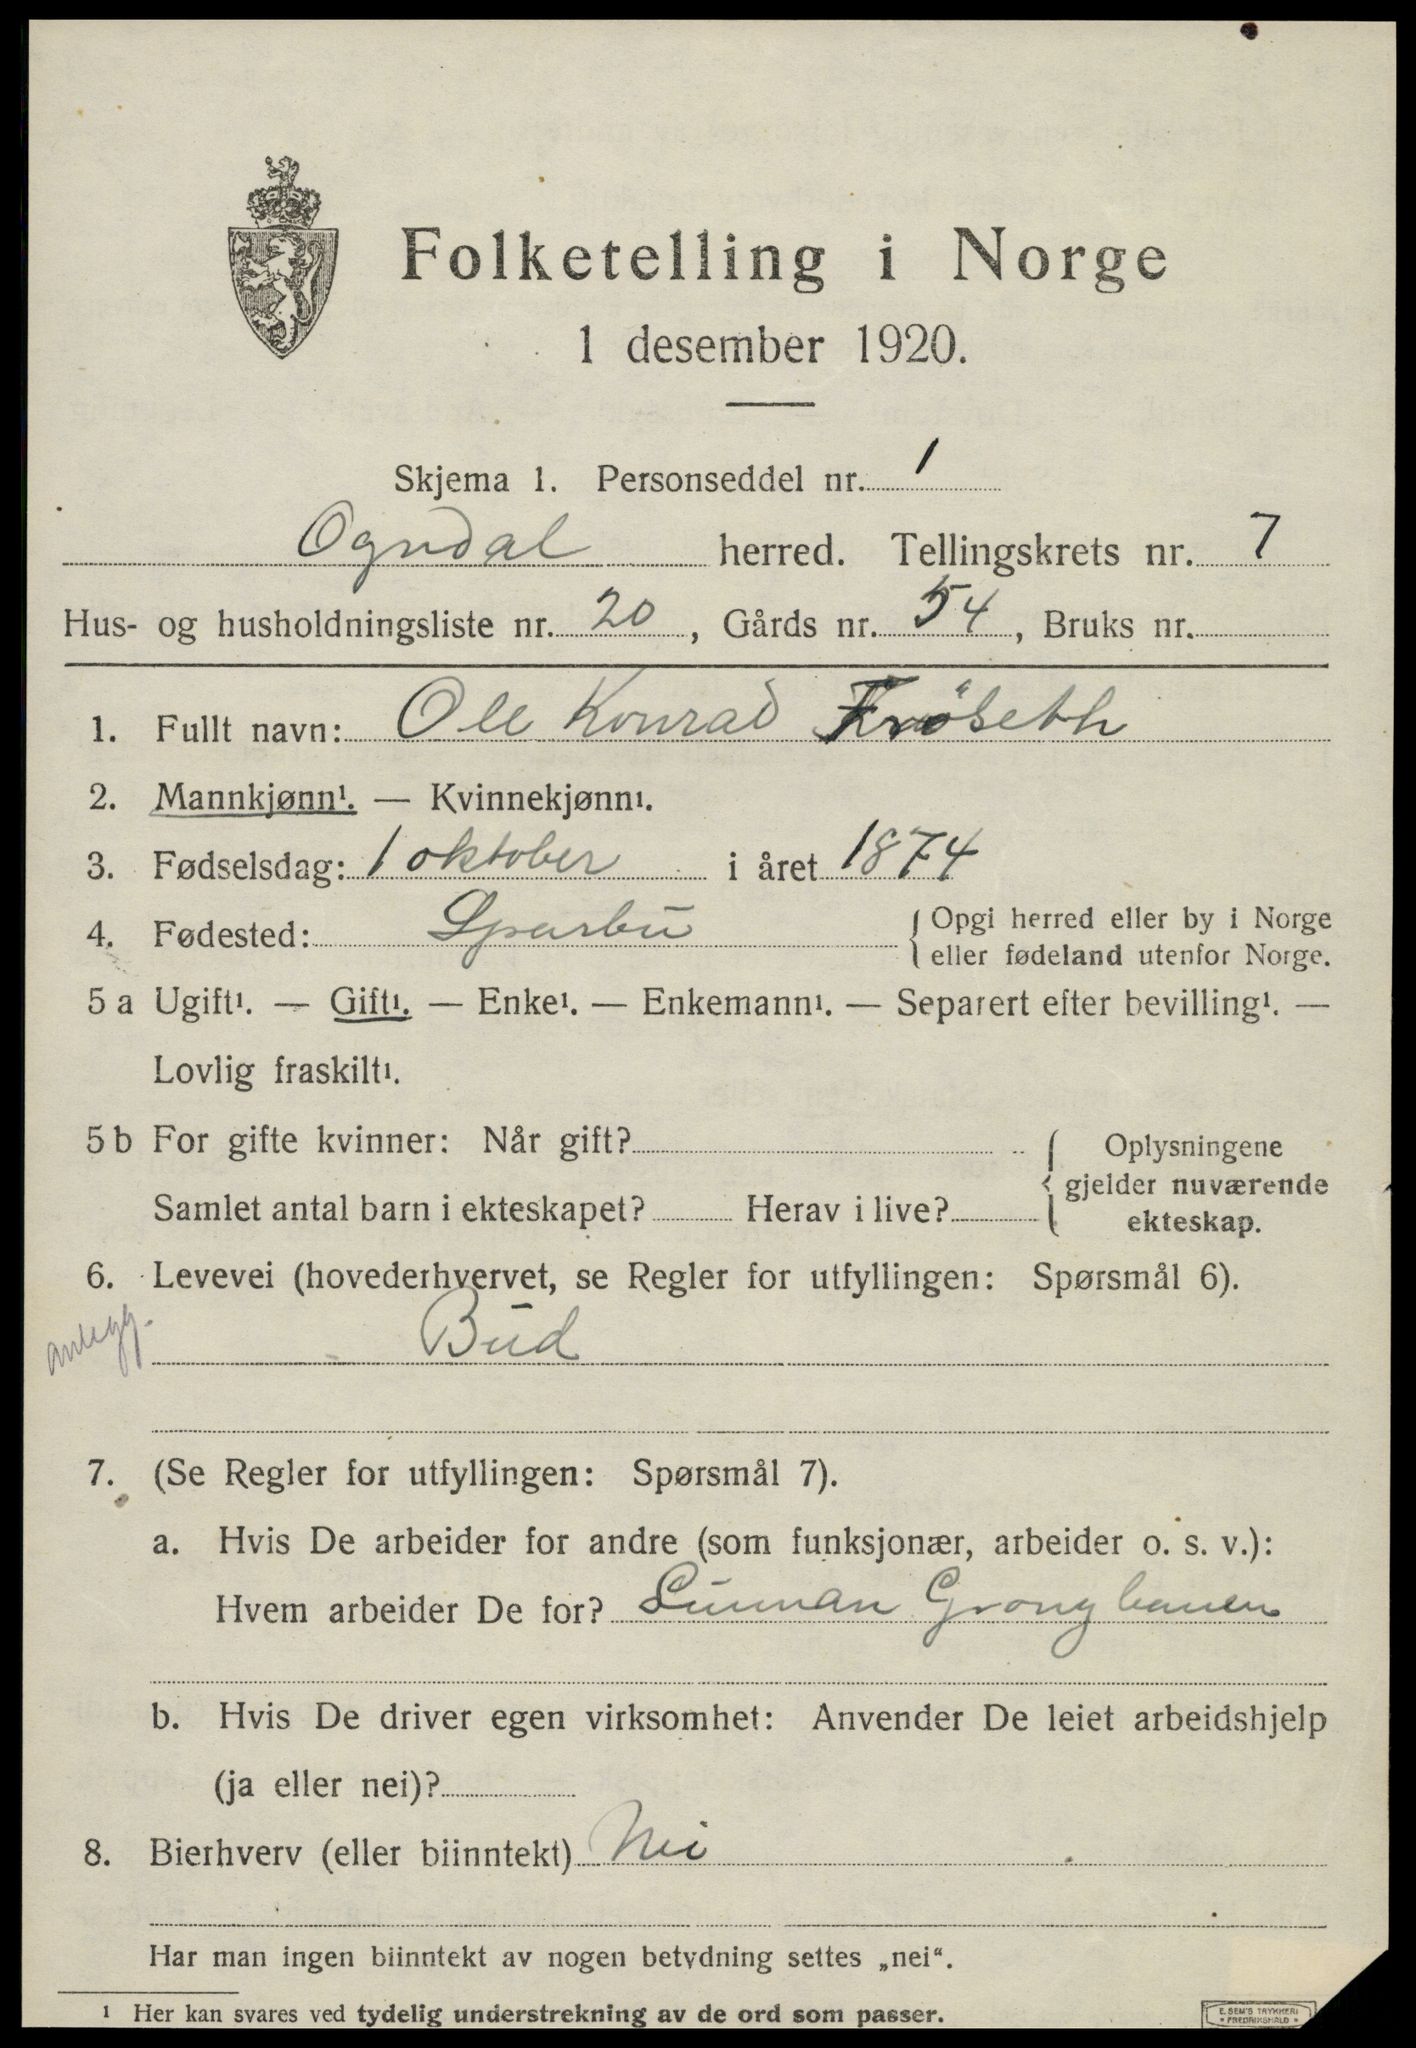 Folketelling i Norge
1 desember 1920.
Skjema 1. Personseddel nr. 1
Ogndal herred. Tellingskrets nr. 7
Hus- og husholdningsliste nr. 20, Gårds nr. 54, Bruks nr.
1. Fullt navn: Ole Konrad Frøseth
2. Mannkjønn¹. — Kvinnekjønn¹.
3. Fødselsdag: 1 oktober i året 1874
4. Fødested: Sparbu { Opgi herred eller by i Norge
eller fødeland utenfor Norge.
5 a Ugift¹. — Gift¹. — Enke¹. — Enkemann¹. — Separert efter bevilling¹. —
Lovlig fraskilt¹.
5 b For gifte kvinner: Når gift?
Samlet antal barn i ekteskapet? Herav i live?
{ Oplysningene
gjelder nuværende
ekteskap.
6. Levevei (hovederhvervet, se Regler for utfyllingen: Spørsmål 6).
anlegg.
Bud
7. (Se Regler for utfyllingen: Spørsmål 7).
a. Hvis De arbeider for andre (som funksjonær, arbeider o. s. v.):
Hvem arbeider De for? Sunnan Grongbanen
b. Hvis De driver egen virksomhet: Anvender De leiet arbeidshjelp
(ja eller nei)?
8. Bierhverv (eller biinntekt) Nei
Har man ingen biinntekt av nogen betydning settes „nei“.
¹ Her kan svares ved tydelig understrekning av de ord som passer.
E. SEM'S TRYKKERI
FREDRIKSHALD